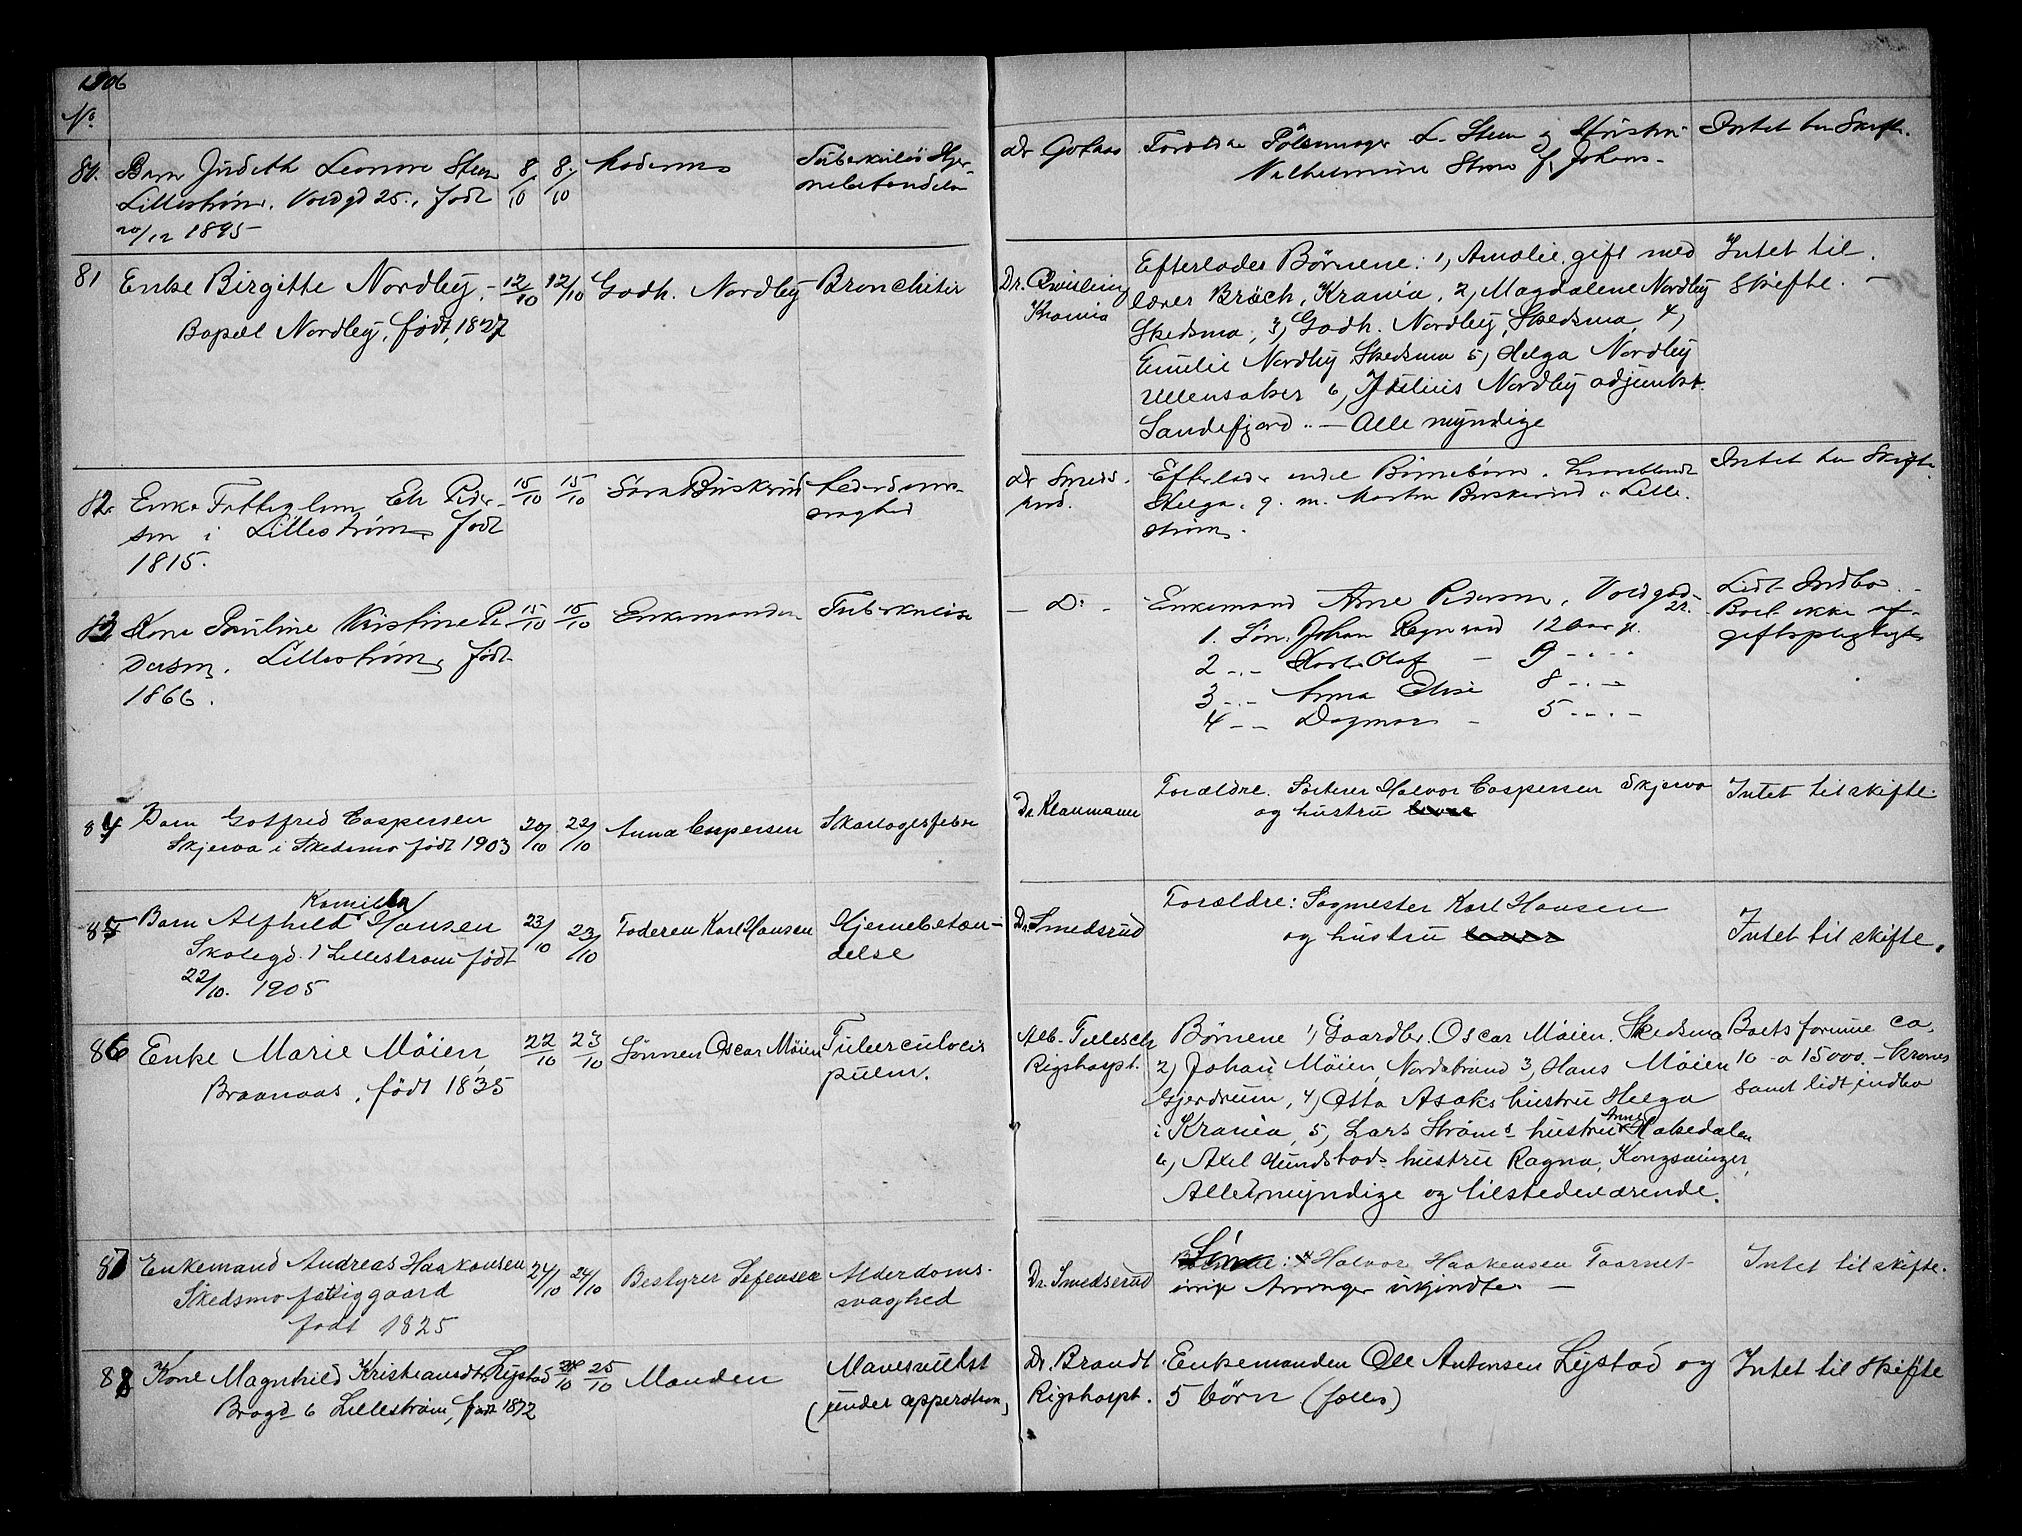 1906
No.
80. Barn Judith Leonore Steen 8/10 8/10 Moderen Tuberkuløs Hjer-
Lillestrøm. Voldgd 25., født nebetændelse
20/12 1895
Dr Gotaas Forældre Pølsemager L. Steen og Hustru Intet til Skifte.
Vilhelmine Steen f. Johans-
81 Enke Birgitte Nordby, 12/10 12/10 Godh. Nordby Bronchitis
Bapæl Nordby, født, 1827
Dr. Qvisling Efterlader Børnene: 1, Amalie, gift med Intet til
Krania lærer Bräch, Krania, 2, Magdalene Nordby Skifte. —
Skedsmo, 3, Godh. Nordby, Skedsmo, 4,
Emilie Nordby Skedsmo 5, Helga Nordby
Ullensaker 6, Julius Nordby adjunkt
Sandefjord.. — Alle myndige
82. Enke Fattiglem Eli Peder- 15/10 15/10 Søren Buskerud Alderdoms-
sen i Lillestrøm født svaghed
1815.
Dr Smeds- Efterlader endel Børnebørn. Iblandt Intet til Skifte.
rud. Helga, g. m. Morten Buskerud i Lille-
strøm.
83 Kone Pauline Kristine Pe 15/10 15/10 Enkemanden Tuberkulose
dersen. Lillestrøm, født
1866.
— D: - Enkemand Arne Pedersen, Voldgad- Lidt Indbo. -
22. Boet ikke af-
1. Søn. Johan Regnvald 12 Aar g. giftspligtigt
2 -.- Karl Olaf — 9 -.-.-
3 -.- Anna Elise 8 -.-
4 -- Dagmar - 5 -.-.-
84 Barn Gotfred Caspersen 20/10 22/10 Anna Caspersen Skarlagesfeber
Skjerva i Skedsmo født 1903
Dr. Klaumann Forældre. Sorterer Halvor Caspersen Skjerva Intet til skifte.
og hustru
Kamilla
85 Barn Alfhild Hansen 23/10 23/10 Faderen Karl Hansen Hjernebetæn-
Skolegd. 1 Lillestrøm født delse
22/10. 1905
Dr. Smedsrud Forældre: Sagmester Karl Hansen
og hustru Intet til skifte.
86 Enke Marie Möien, 22/10 23/10 Sønnen Oscar Möien Tuberculosis
Braanaas, født 1835 pulm.
Alb. Tillisch Børnene 1, Gaardbr. Oscar Möien. Skedsmo Boets formue ca.
Rigshospt. 2, Johan Möien, Nordstrand 3, Hans Möien 10 a 15000. - kroner
Gjerdrum, 4, Otto Asaks hustru Helga samt lidt indbo
i Krania, 5, Lars Strøms hustru Anna Hakedalen
6, Axel Sundstads hustru Ragna, Kongsvinger,
Alle myndige og tilstedeværende.
87 Enkemand Andreas Haakonsen 24/10 24/10 Bestyrer Sefensen Alderdoms-
Skedsmo fattiggaard svaghed
født 1825
Dr. Smedsrud : Halvor Haakensen Intet til skifte.
Arvinger ukjendte. —
88 Kone Magnhild Kristiansdt. Lystad 24/10 25/10 Manden Mavesvulst
Brogd 6 Lillestrøm, født 1872 (under opperation)
Dr. Brandt Enkemanden Ole Antonsen Lystad og Intet til skifte
Rigshospt. 5 børn (fælles)